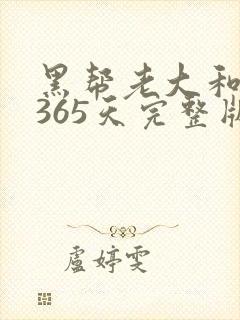 黑帮老大和
365天完整版
盧婷雯